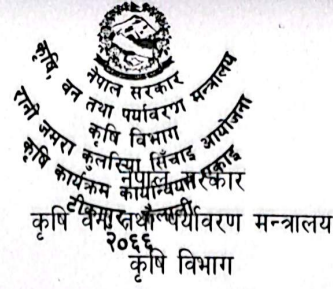 नेपाल सरकार
कृषि, वन तथा पर्यावरण मन्त्रालय
कृषि विभाग
रानी जमरा कुलरिया सिँचाइ आयोजना
कृषि कार्यक्रम कार्यान्वयन एकाइ
टीकापुर, कैलाली
२०६६
नेपाल सरकार
कृषि वन तथा पर्यावरण मन्त्रालय
कृषि विभाग